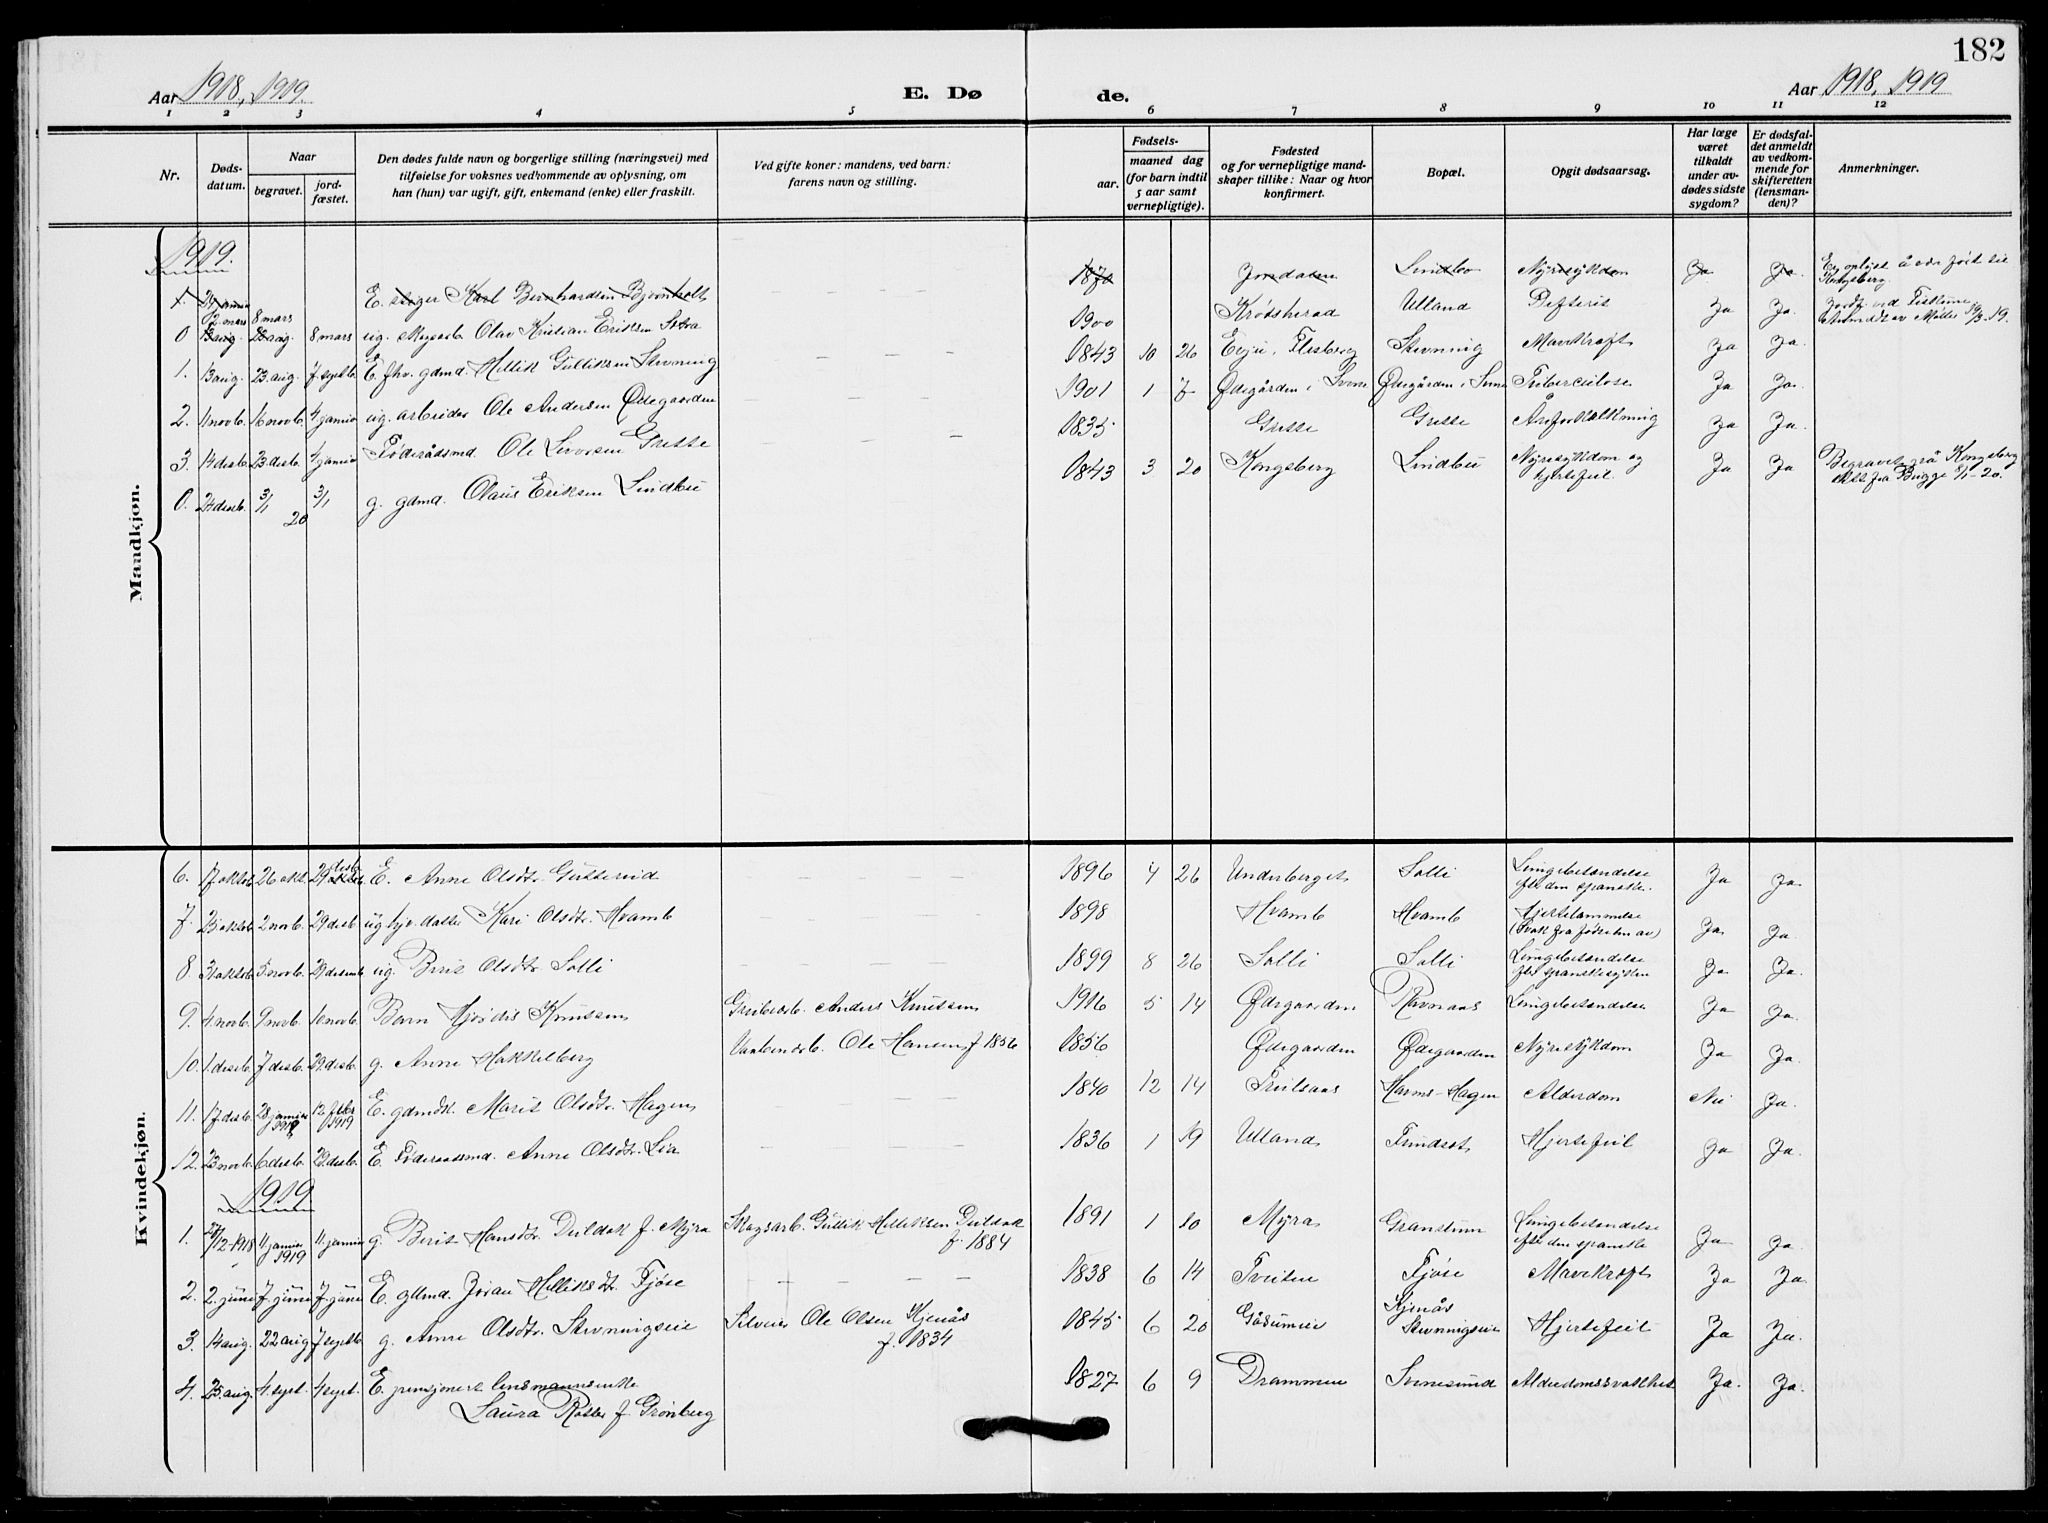 182
Aar 1918, 1919.
E. Dø
de.
Aar 1918, 1919
1 2 3 4 5 6 7 8 9 10 11 12
Nr.
Døds-
datum.
Naar
begravet.
jord-
fæstet.
Den dødes fulde navn og borgerlige stilling (næringsvei) med
tilføielse for voksnes vedkommende av oplysning, om
han (hun) var ugift, gift, enkemand (enke) eller fraskilt.
Ved gifte koner: mandens, ved barn:
farens navn og stilling.
Fødsels-
aar.
maaned dag
(for barn indtil
5 aar samt
vernepligtige).
Fødested
og for vernepligtige mand-
skaper tillike: Naar og hvor
konfirmert.
Bopæl.
Opgit dødsaarsag.
Har læge
været
tilkaldt
under av-
dødes sidste
sygdom?
Er dødsfal-
det anmeldt
av vedkom-
mende for
skifteretten
(lensman-
den)?
Anmerkninger.
Mandkjøn.
1919.
1. 24 januar E. Karl Bernhardsen Bjørnholt 1870 Jondalen Lindbo Nyresykdom Ja Ja.
Kongsberg.
0 12 mars 8 mars 8 mars ug. skogsarb. Olav Kristian Eriksen 1900 Krødsherad Ulland Difterit Ja Ja.
1. 13 aug. 23. aug. 7 septb. E. fhv. gdmd. Hellik Gulliksen Skvnning 1843 10 26 Evju, Flesberg Skvnning Mavekræft Ja Ja.
2. 11 novb. 16 novb. 4 januar ug. arbeider Ole Andersen Ødegaarden 1901 1 7 Ødegården i Svene Ødegården i Svene Tuberculose Ja Ja.
3. 14 desb. 23. desb. 4 januar Føderådsmd. Ole Liversen Grette 1835 Grette Grette Åreforkalkning Ja Ja.
0. 24 desb. 3/1 20 3/1 g. gdmd. Olaus Eriksen Lindbu 1843 3 20 Kongsberg Lindbu Nyresykdom og
hjertefeil. Ja Ja Begravet på Kongsberg
Kvindekjøn.
6. 17 oktob 26 okt. 29 desb E. Anne Olsdtr. Gutterud 1896 4 26 Underberget Solli Lungebetændelse
efter den spanske. Ja Ja.
7. 23 oktob 2 novb. 29 desb. ug. hjv. datter Kari Olsdtr. Hvamb 1898 Hvamb Hvamb Hjertelammelse
(svak fra fødselen av) Ja Ja.
8 31 oktob 5. novb. 29 desemb ug. Berit Olsdtr Solli 1899 8 26 Solli Solli Lungebetændelse
efter spanskesyken Ja Ja.
9. 4. novb. 9 novb. 10 novb. Barn Hjørdis Knutsen Grubearb. Anders Knutsen 1916 5 14 Ødegaarden Ravnaas Lungebetændelse Ja Ja.
10. 1. desb. 7 desb. 29. desb. g. Anne Hakkelberg Ole Hansen f. 1856 1856 Ødegaarden Ødegaarden Nyresykdom Ja Ja.
11. 17. desb. 28 januar 1919 12. febr 1919 E. gdmdk. Marit Olsdtr. Hagen 1840 12 14 Trulsaas Havms-Hagen Alderdom Nei Ja.
12. 23 novb. 6 desb. 29. desb. E. Føderaadsmd. Anne Olsdtr. Lia 1836 1 19 Ulland Trundset Hjertefeil Ja Ja.
1919.
1. 27/12-1918 11 januar 1919 11. januar g. Berit Hansdtr. Duldak f. Myra Skogsarb. Gullik Helliksen Duldak
f. 1884 1891 1 10 Myra Granstum Lungebetændelse
efter den spanske Ja Ja.
2. 2. juni 7. juni 7. juni E. gdmd. Joran Helliksdtr. Fjøse 1838 6 14 Tveiten Fjøse Mavekræft Ja Ja.
3. 14 aug. 22 aug 7 septb. g. Anne Olsdtr. Skvnningseie Ole Olsen Kjenås
f. 1834 1845 6 20 Gåsumeie Kjenås
Skvnningseie Hjertefeil Ja Ja.
4. 25. aug. 4. sept. 4 sept. E. pensjonert lensmannsenke
Laura Roller f. Grønberg 1827 6 9 Drammen Svenesund Alderdomssvakhet Ja. Ja.